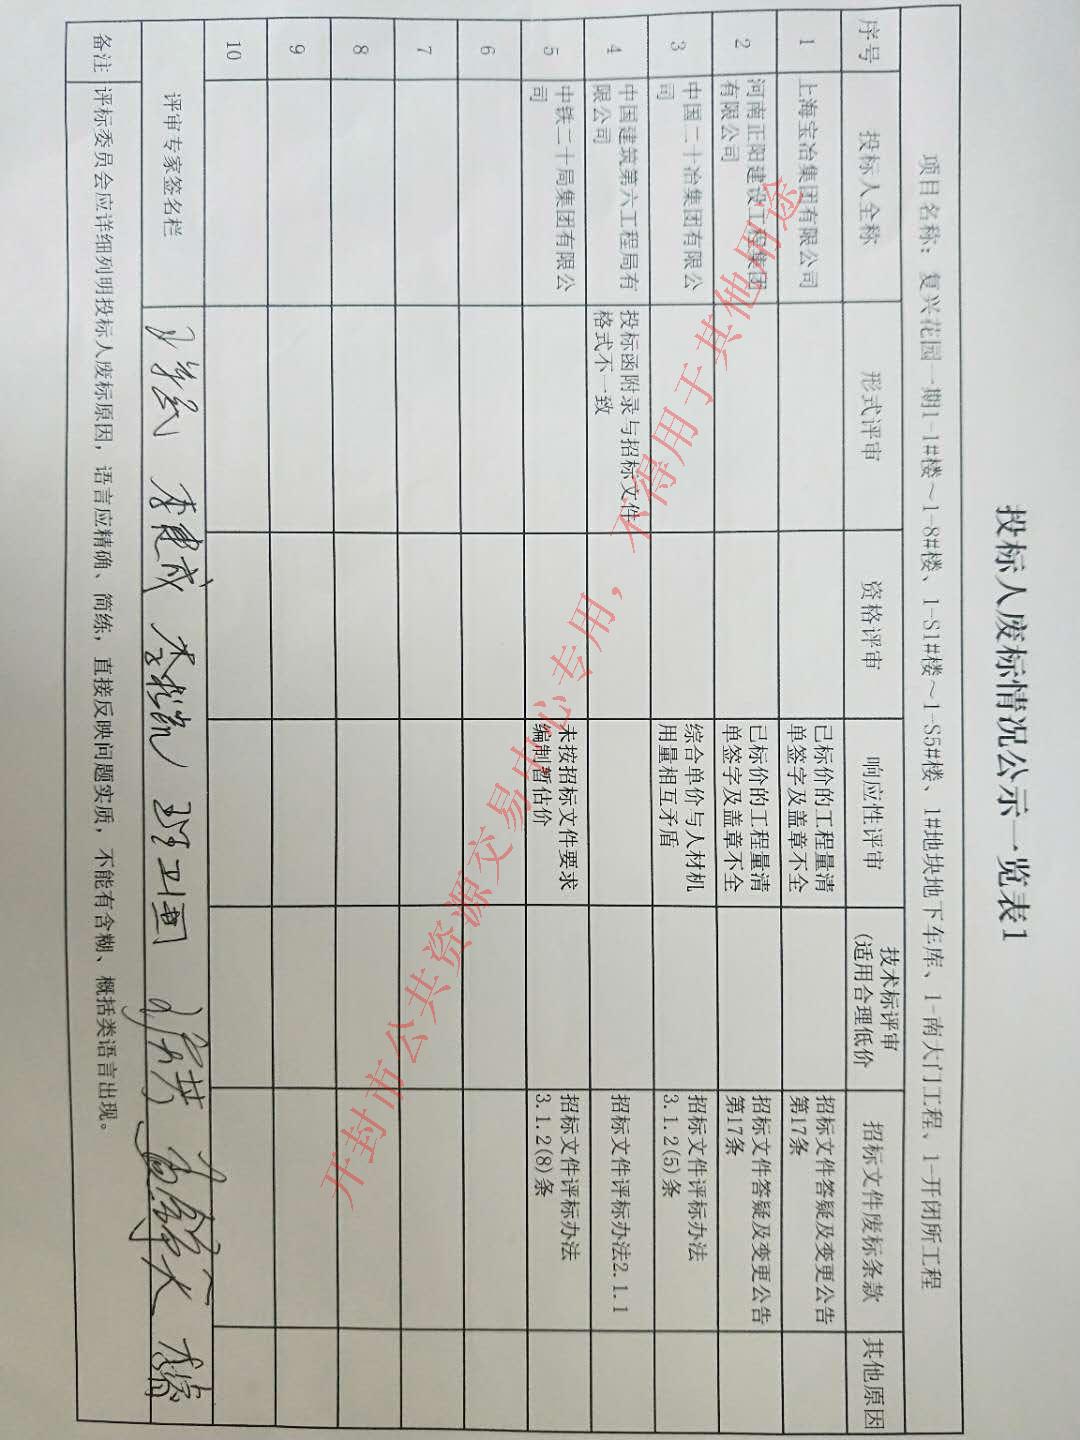 投标人废标情况公示一览表1
项目名称：复兴花园一期1-1#楼～1-8#楼、1-S1#楼～1-S5#楼、1#地块地下车库、1-南大门工程、1-开闭所工程
序号 投标人全称 形式评审 资格评审 响应性评审 技术标评审 招标文件废标条款 其他原因
(适用合理低价
1 上海宝冶集团有限公司 已标价的工程量清 招标文件答疑及变更公告
单签字及盖章不全 第17条
2 河南正阳建设工程集团 已标价的工程量清 招标文件答疑及变更公告
有限公司 单签字及盖章不全 第17条
3 中国二十冶集团有限公 综合单价与人材机 招标文件评标办法
司 用量相互矛盾 3.1.2(5)条
4 中国建筑第六工程局有 投标函附录与招标文件 招标文件评标办法2.1.1
限公司 格式不一致
5 中铁二十局集团有限公 未按招标文件要求 招标文件评标办法
司 编制暂估价 3.1.2(8)条
6
7
8
9
10
评审专家签名栏
备注 评标委员会应详细列明投标人废标原因，语言应精确、简练，直接反映问题实质，不能有含糊、概括类语言出现。
开封市公共资源交易中心专用，不得用于其他用途